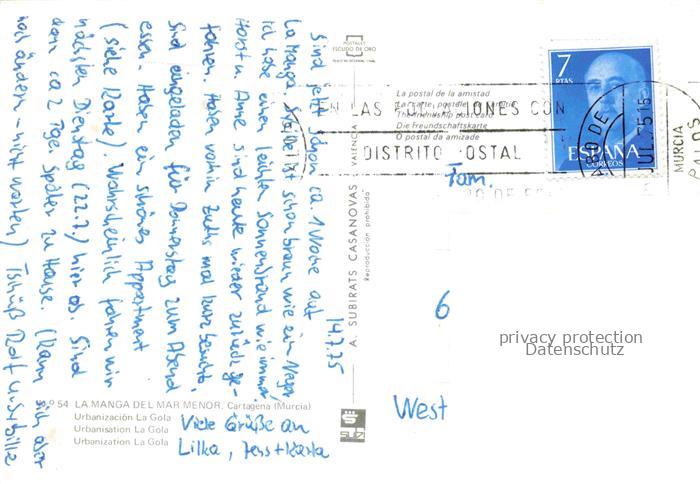 14.7.75
Sind jetzt schon ca 1 Woche auf
La Manga. Sybille ist schon braun wie ein Neger
Ich habe einen leichten Sonnenbrand wie immer.
Horst u. Anne sind heute wieder zurück ge-
fahren. Haben vorhin Ruths mal kurz besucht,
sind eingeladen für Donnerstag zum Abend
essen. Haben ein schönes Appartment
(siehe Karte). Wahrscheinlich fahren wir
nächsten Dienstag (22.7.) hier ab. Sind
dann ca 2 Tage später zu Hause. (Kann sich aber
noch ändern - nicht warten) Tschüß Rolf u. Sybille
Viele Grüße an
Lilka, Jens + Karla
Nº 54 LA MANGA DEL MAR MENOR. Cartagena (Murcia)
Urbanización La Gola
Urbanisation La Gola
Urbanization La Gola
POSTALES
ESCUDO DE ORO
A. SUBIRATS CASANOVAS - VALENCIA
Reproducción prohibida
La postal de la amistad
La carte postale de l'amitié
The friendship post card
Die Freundschaftskarte
O postal da amizade
EN LAS POBLACIONES CON
DISTRITO POSTAL
7
PTAS
ESPAÑA
CORREOS
CABO DE
JUL 75
MURCIA
Fam.
6
West
privacy protection
Datenschutz